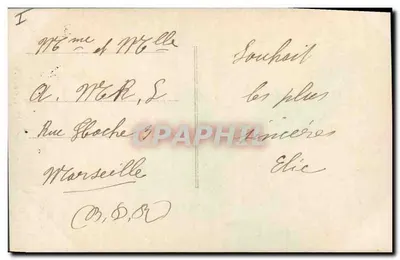 I
Mme et Mlle
A. MR, L
Rue Hoche 9
Marseille
(B. D. R)
Souhait
les plus
sincéres
Elie
CPAPHIL